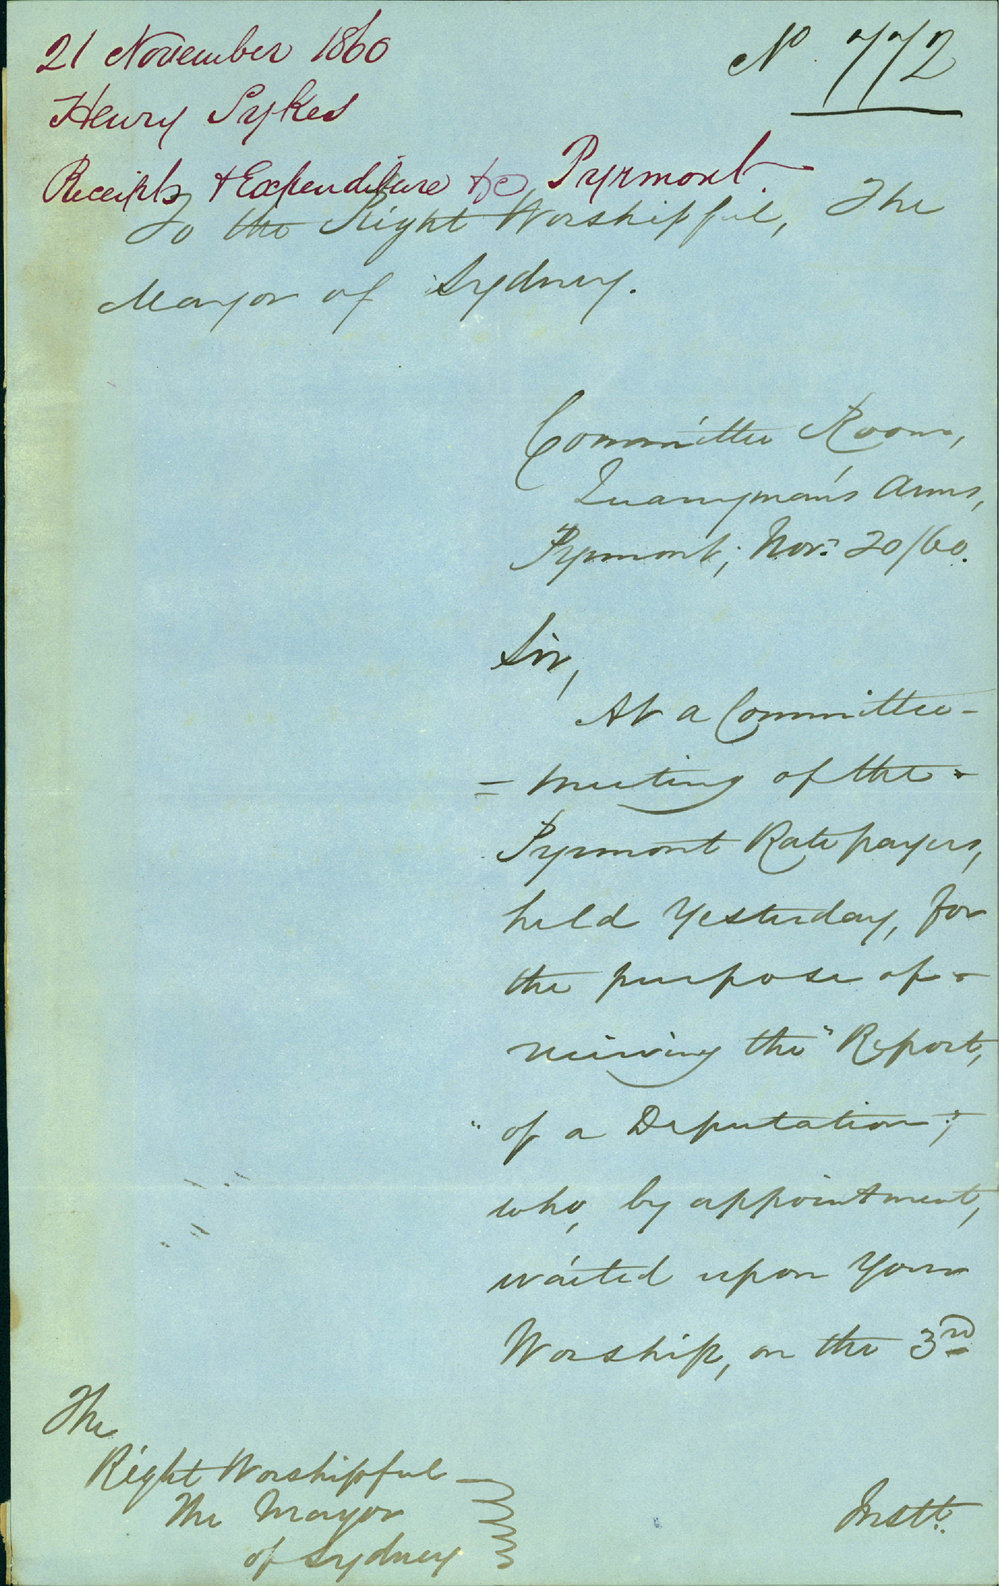 21 November 1860
No 772
Henry Sykes
Receipts & Expenditure &c Pyrmont.
To the Right Worshipful, The
Mayor of Sydney.
Committee Room,
Quarryman's Arms,
Pyrmont; Nov: 20/60.
Sir,
At a Committee-
= meeting of the -
Pyrmont Ratepayers,
held Yesterday, for
the purpose of -
receiving the "Report,
" of a Deputation";
who, by appointment,
waited upon Your
Worship, on the 3rd
Instt.
The
Right Worshipful
The Mayor
of Sydney